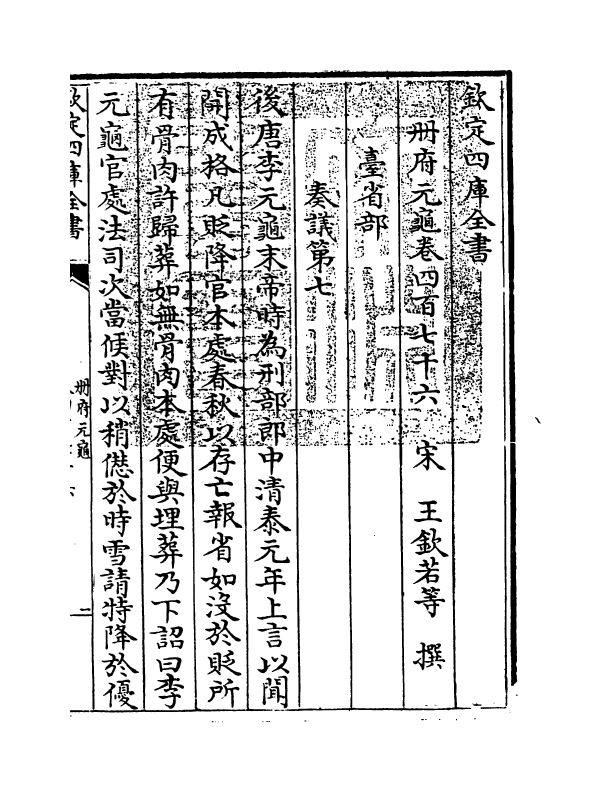 欽定四庫全書
冊府元龜卷四百七十六　宋　王欽若等　撰
臺省部
奏議第七
後唐李元龜末帝時為刑部郎中清泰元年上言以聞
開成格凡貶降官本處春秋以存亡報省如沒於貶所
有骨肉許歸葬如無骨肉本處便與埋葬乃下詔曰李
元龜官處法司次當候對以稍僽於時雪請特降於優
欽定四庫全書
冊府元龜
二